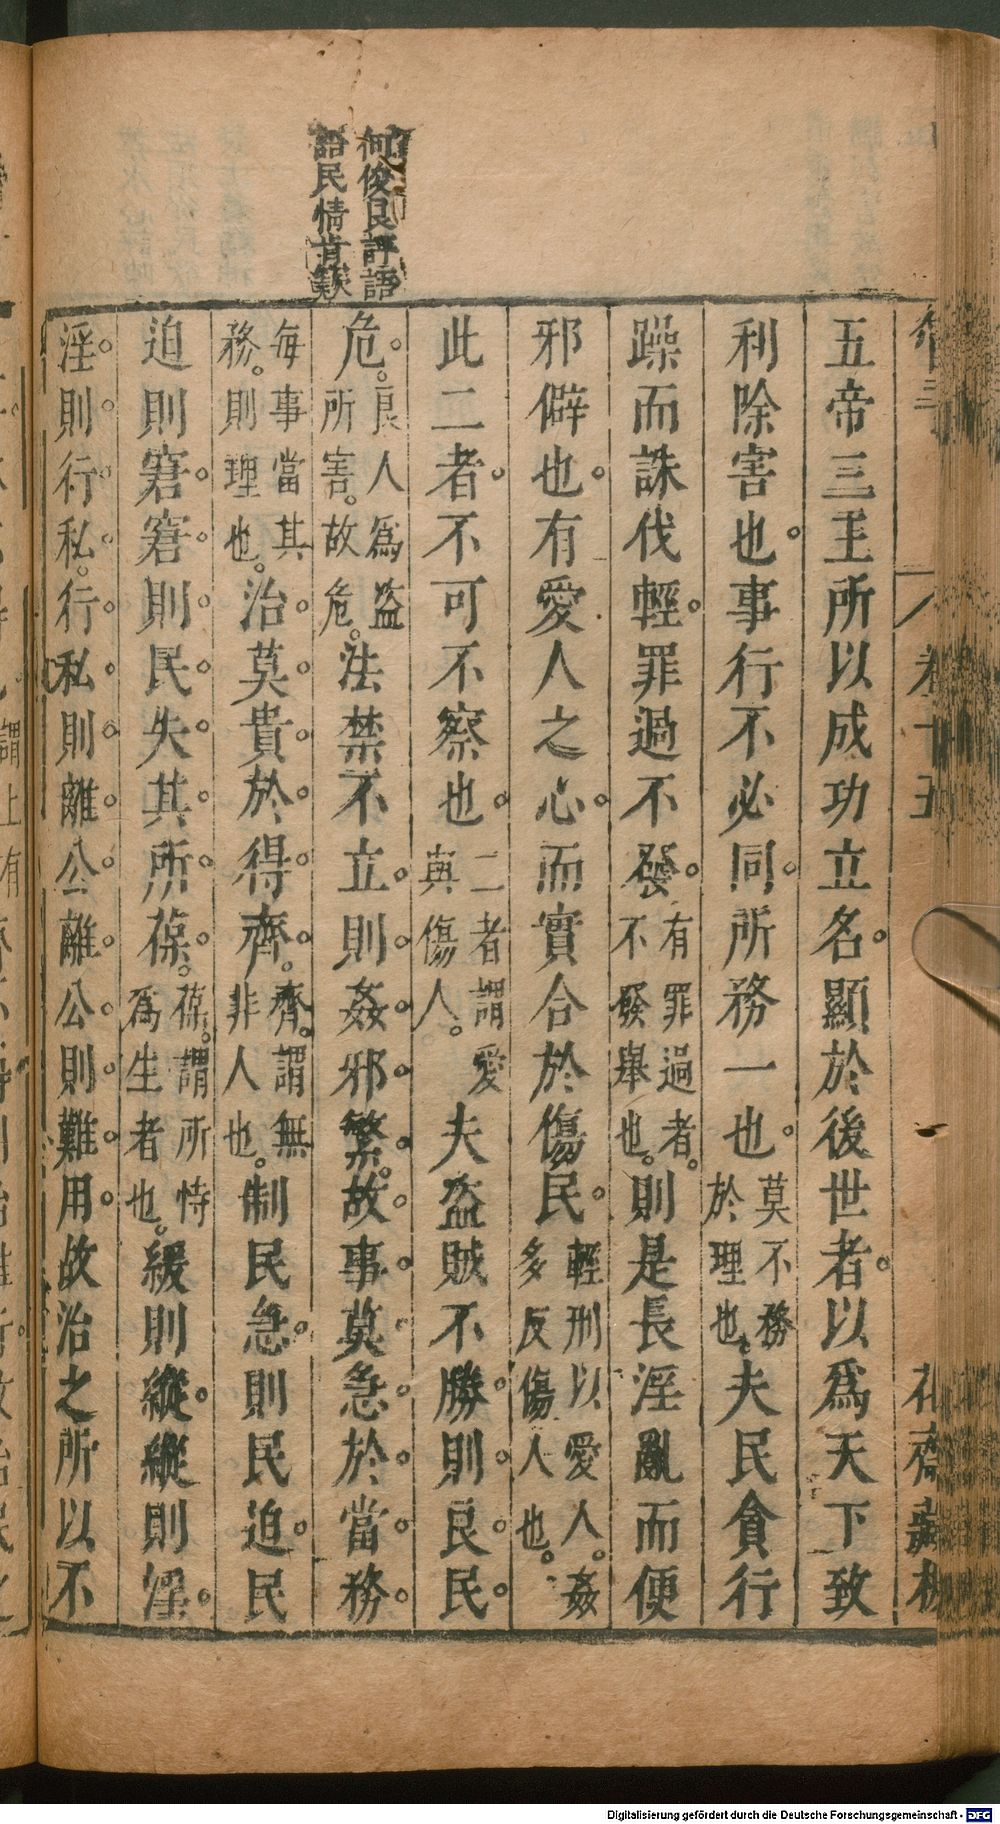 何俊良評語
語民情肯綮
卷十五 花齋藏板
五帝三王所以成功立名。顯於後世者。以爲天下致
利除害也。事行不必同。所務一也。莫不務於理也。夫民貪行
躁而誅伐輕。罪過不發。有罪過者。不發舉也。則是長淫亂而便
邪僻也。有愛人之心。而實合於傷民。輕刑以愛人。姦多反傷人也。
此二者。不可不察也。二者謂愛與傷人。夫盜賊不勝。則良民。
危。良人爲盜所害。故危。法禁不立。則姦邪繁。故事莫急於當務。
每事當其務。則理也。治莫貴於得齊。齊。謂無非人也。制民急。則民迫。民
迫則窘。窘則民失其所葆。葆。謂所恃爲生者也。緩則縱。縱則淫。
淫則行私。行私則離公。離公則難用。故治之所以不
Digitalisierung gefördert durch die Deutsche Forschungsgemeinschaft - DFG